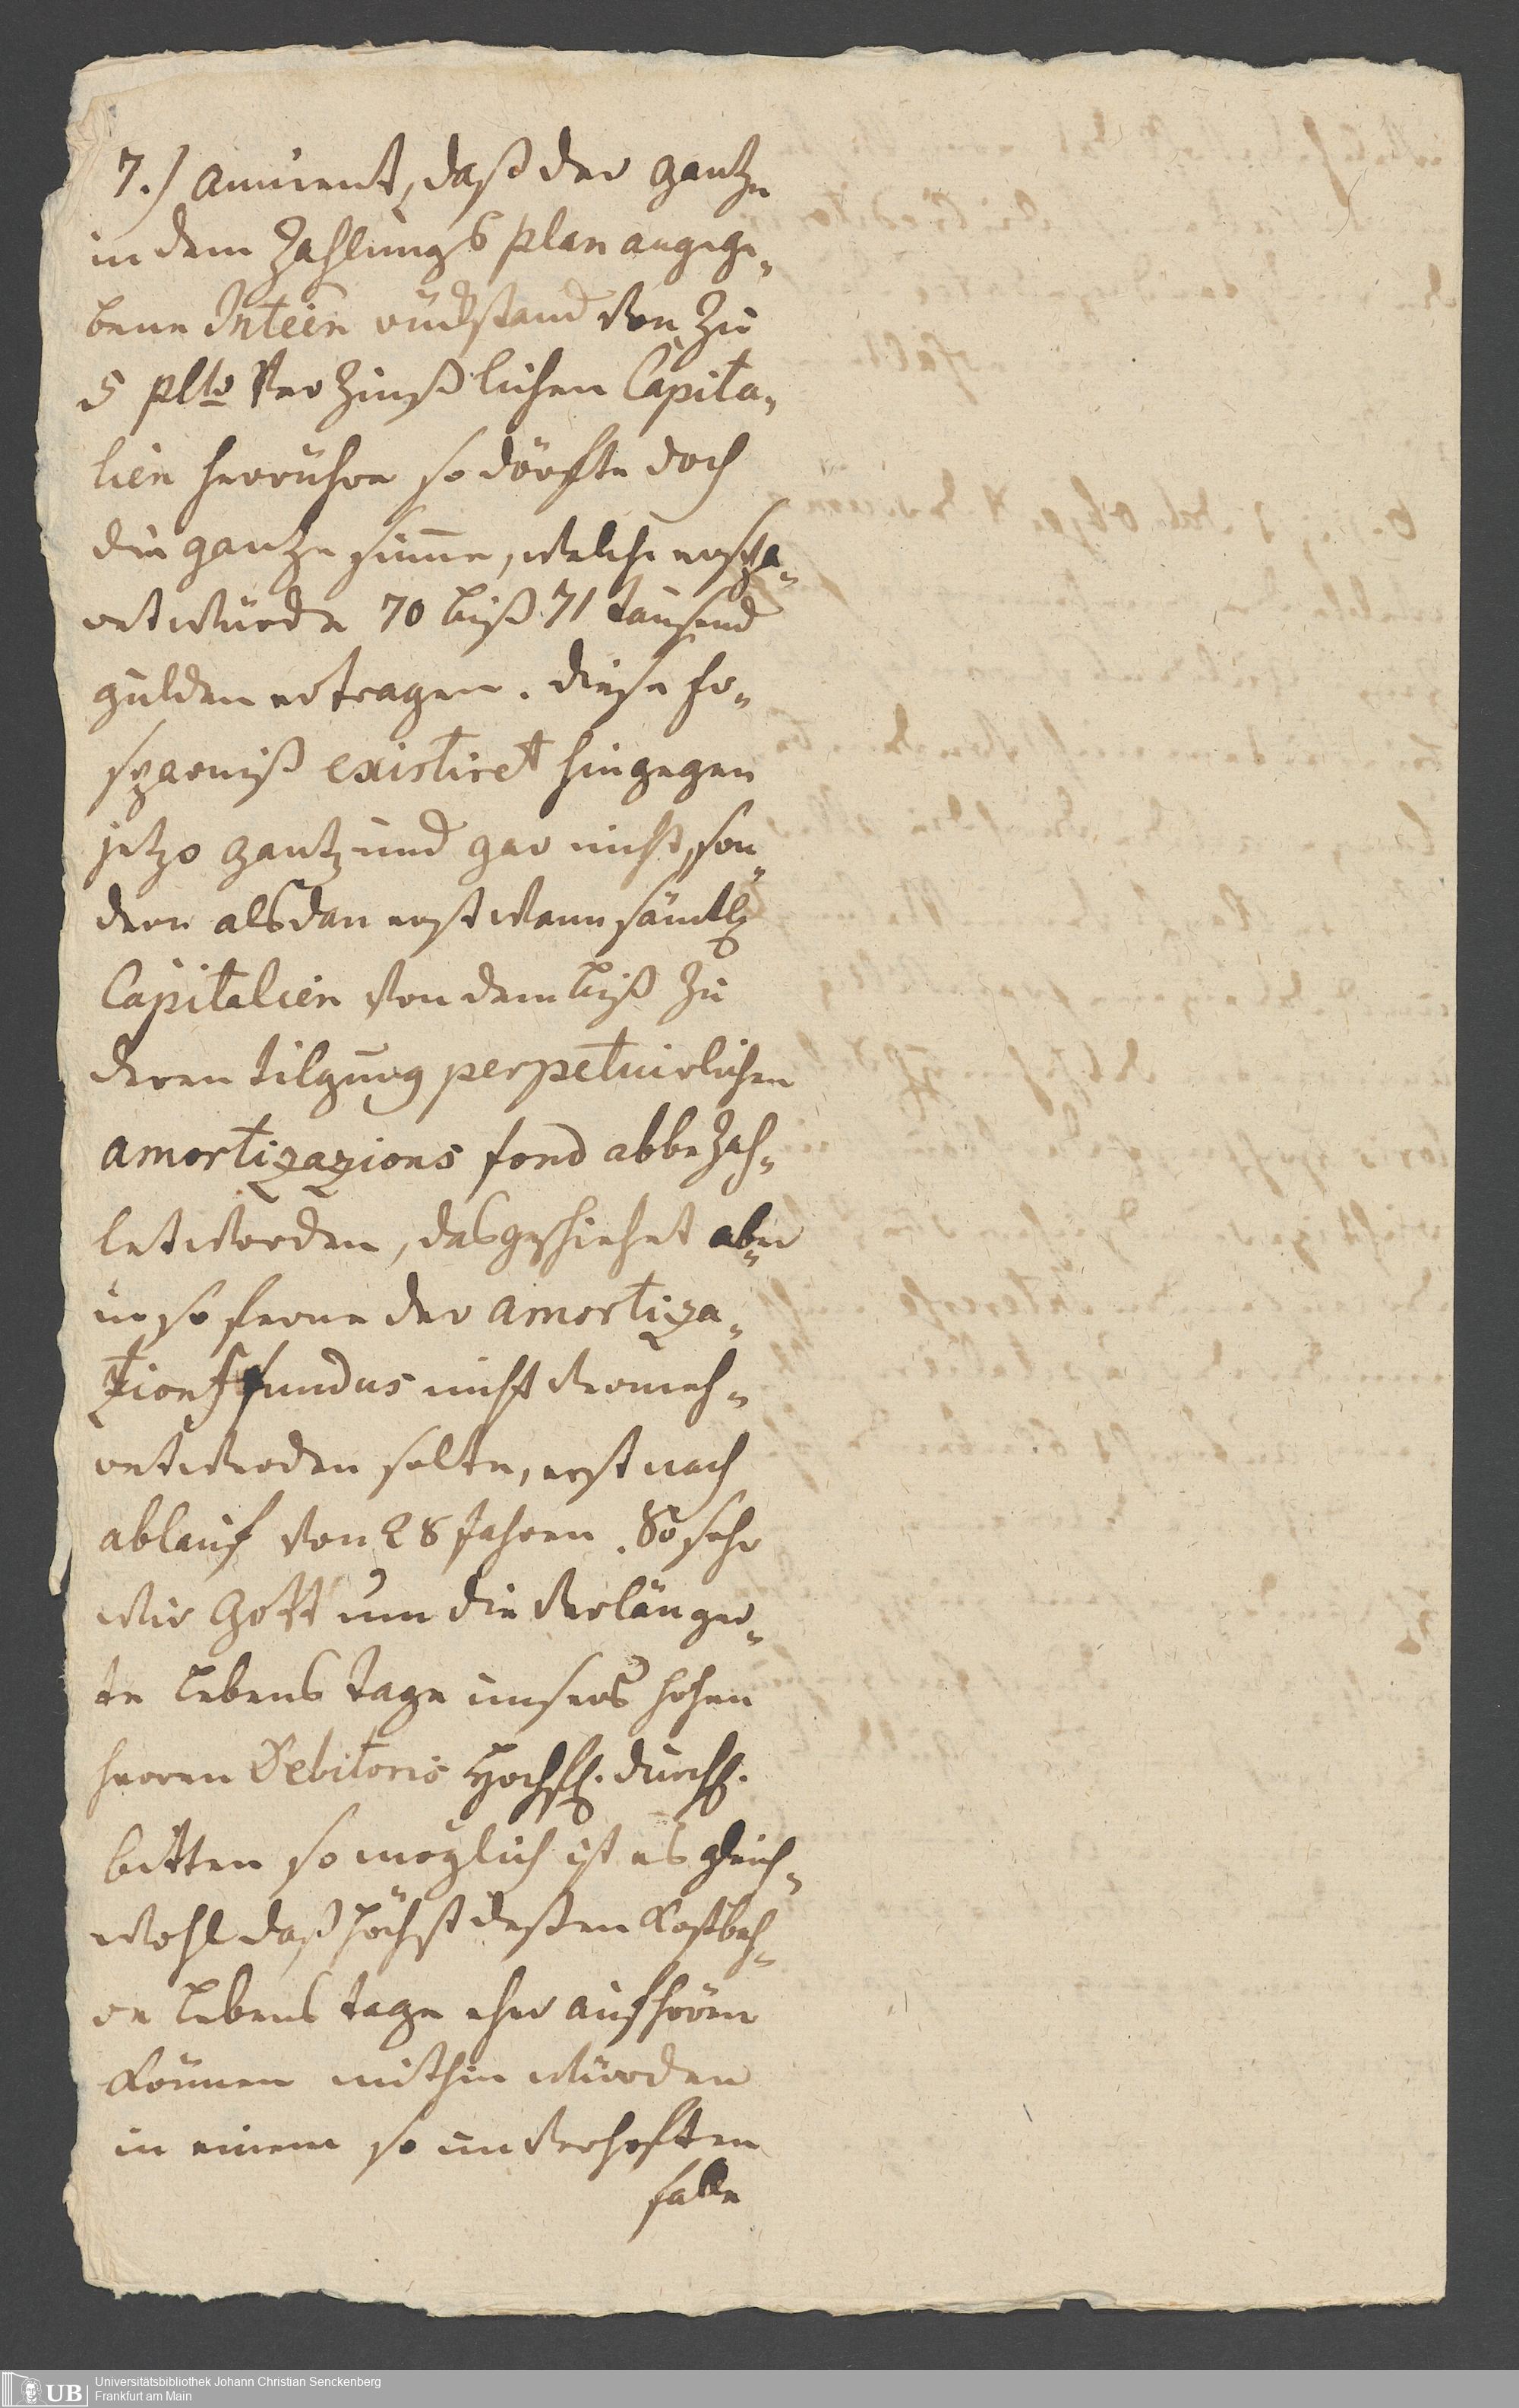 7.) annient, daß der gantze
in dem Zahlungs plan angege-
bene Inteen rückstand von zu
5 pCto verzinßlichen Capita-
lien herrühre so dörfte doch
die gantze sume, welche erspa-
ret würde 70 biß 71 tausend
gulden ertragen. diese Er-
sparniß existiret hingegen
jetzo gantz und gar nicht, son-
dern alsdan erst wann sämtl.
Capitalien von dem biß zu
deren tilgung perpetuirlichen
amortizazions fond abbezah-
let worden, das geschiehet aber
in so ferne der amortiza-
tions fundus nicht vermeh-
ret werden solte, erst nach
ablauf von 28 Jahren. So sehr
wir Gott um die verlänger-
te Lebens tage unsers hohen
herren Debitoris Hochfl. durchl.
bitten so möglich ist es gleich-
wohl daß höchst deßen Kostbah-
re Lebens tage eher aufhören
können mithin würden
in einem so unverhoften
falle
Universitätsbibliothek Johann Christian Senckenberg
Frankfurt am Main
UB